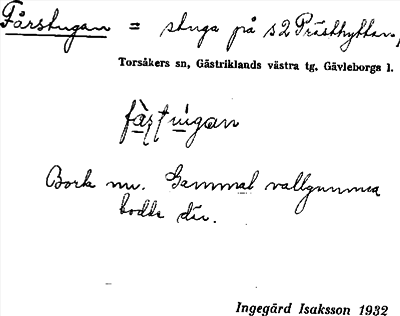 Fårstugan = stuga på s2 Prästhyttan,
Torsåkers sn, Gästriklands västra tg. Gävleborgs l.
Borta nu. Gammal vallgumma
bodde där.
Ingegärd Isaksson 1932